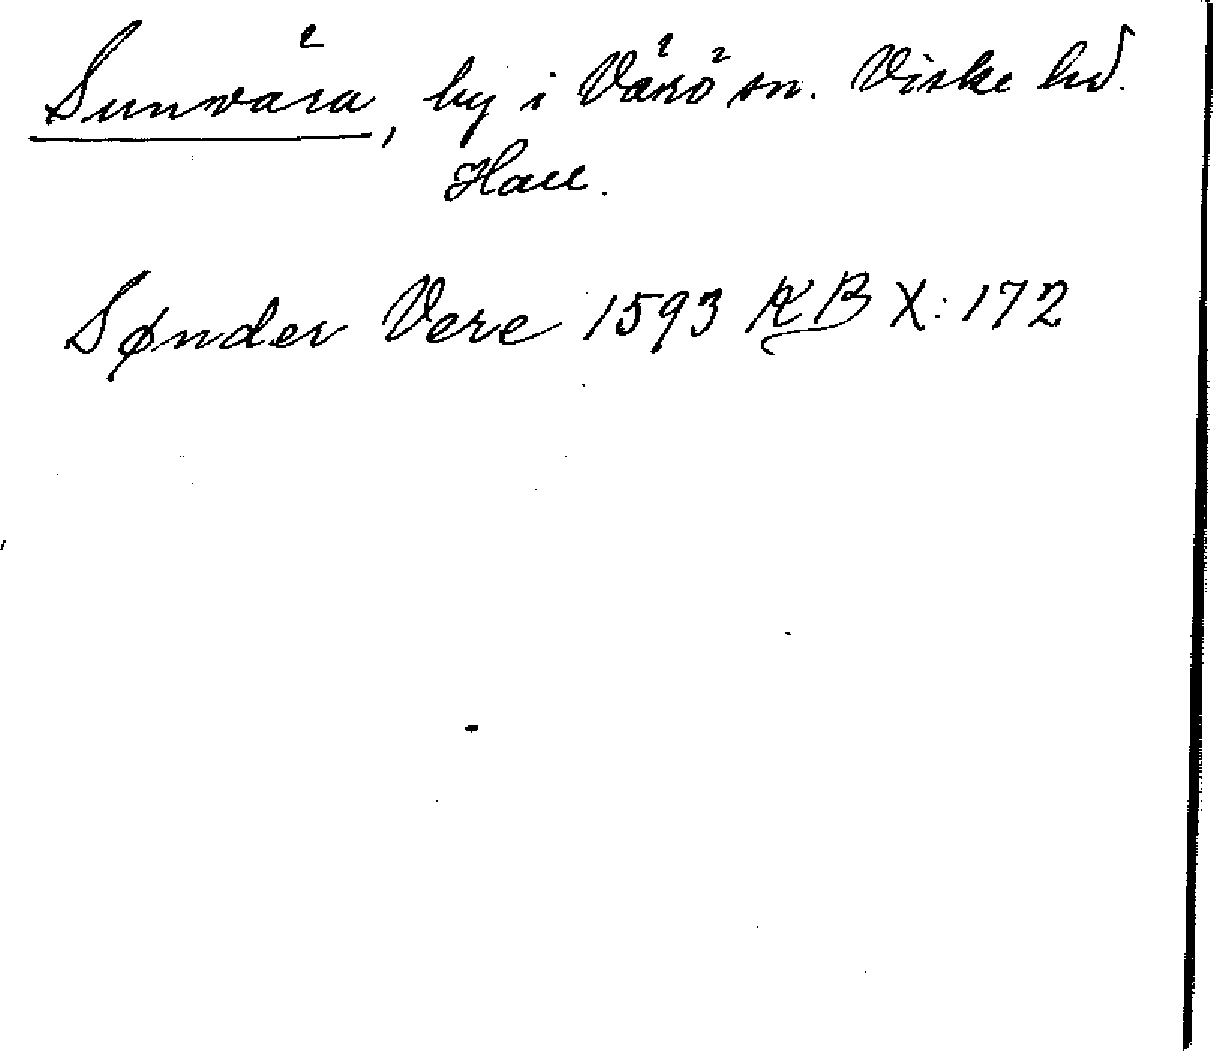 Sunvära, by i Värö sn. Viske hd.
Hall.
Sønder Vere 1593 KB X:172